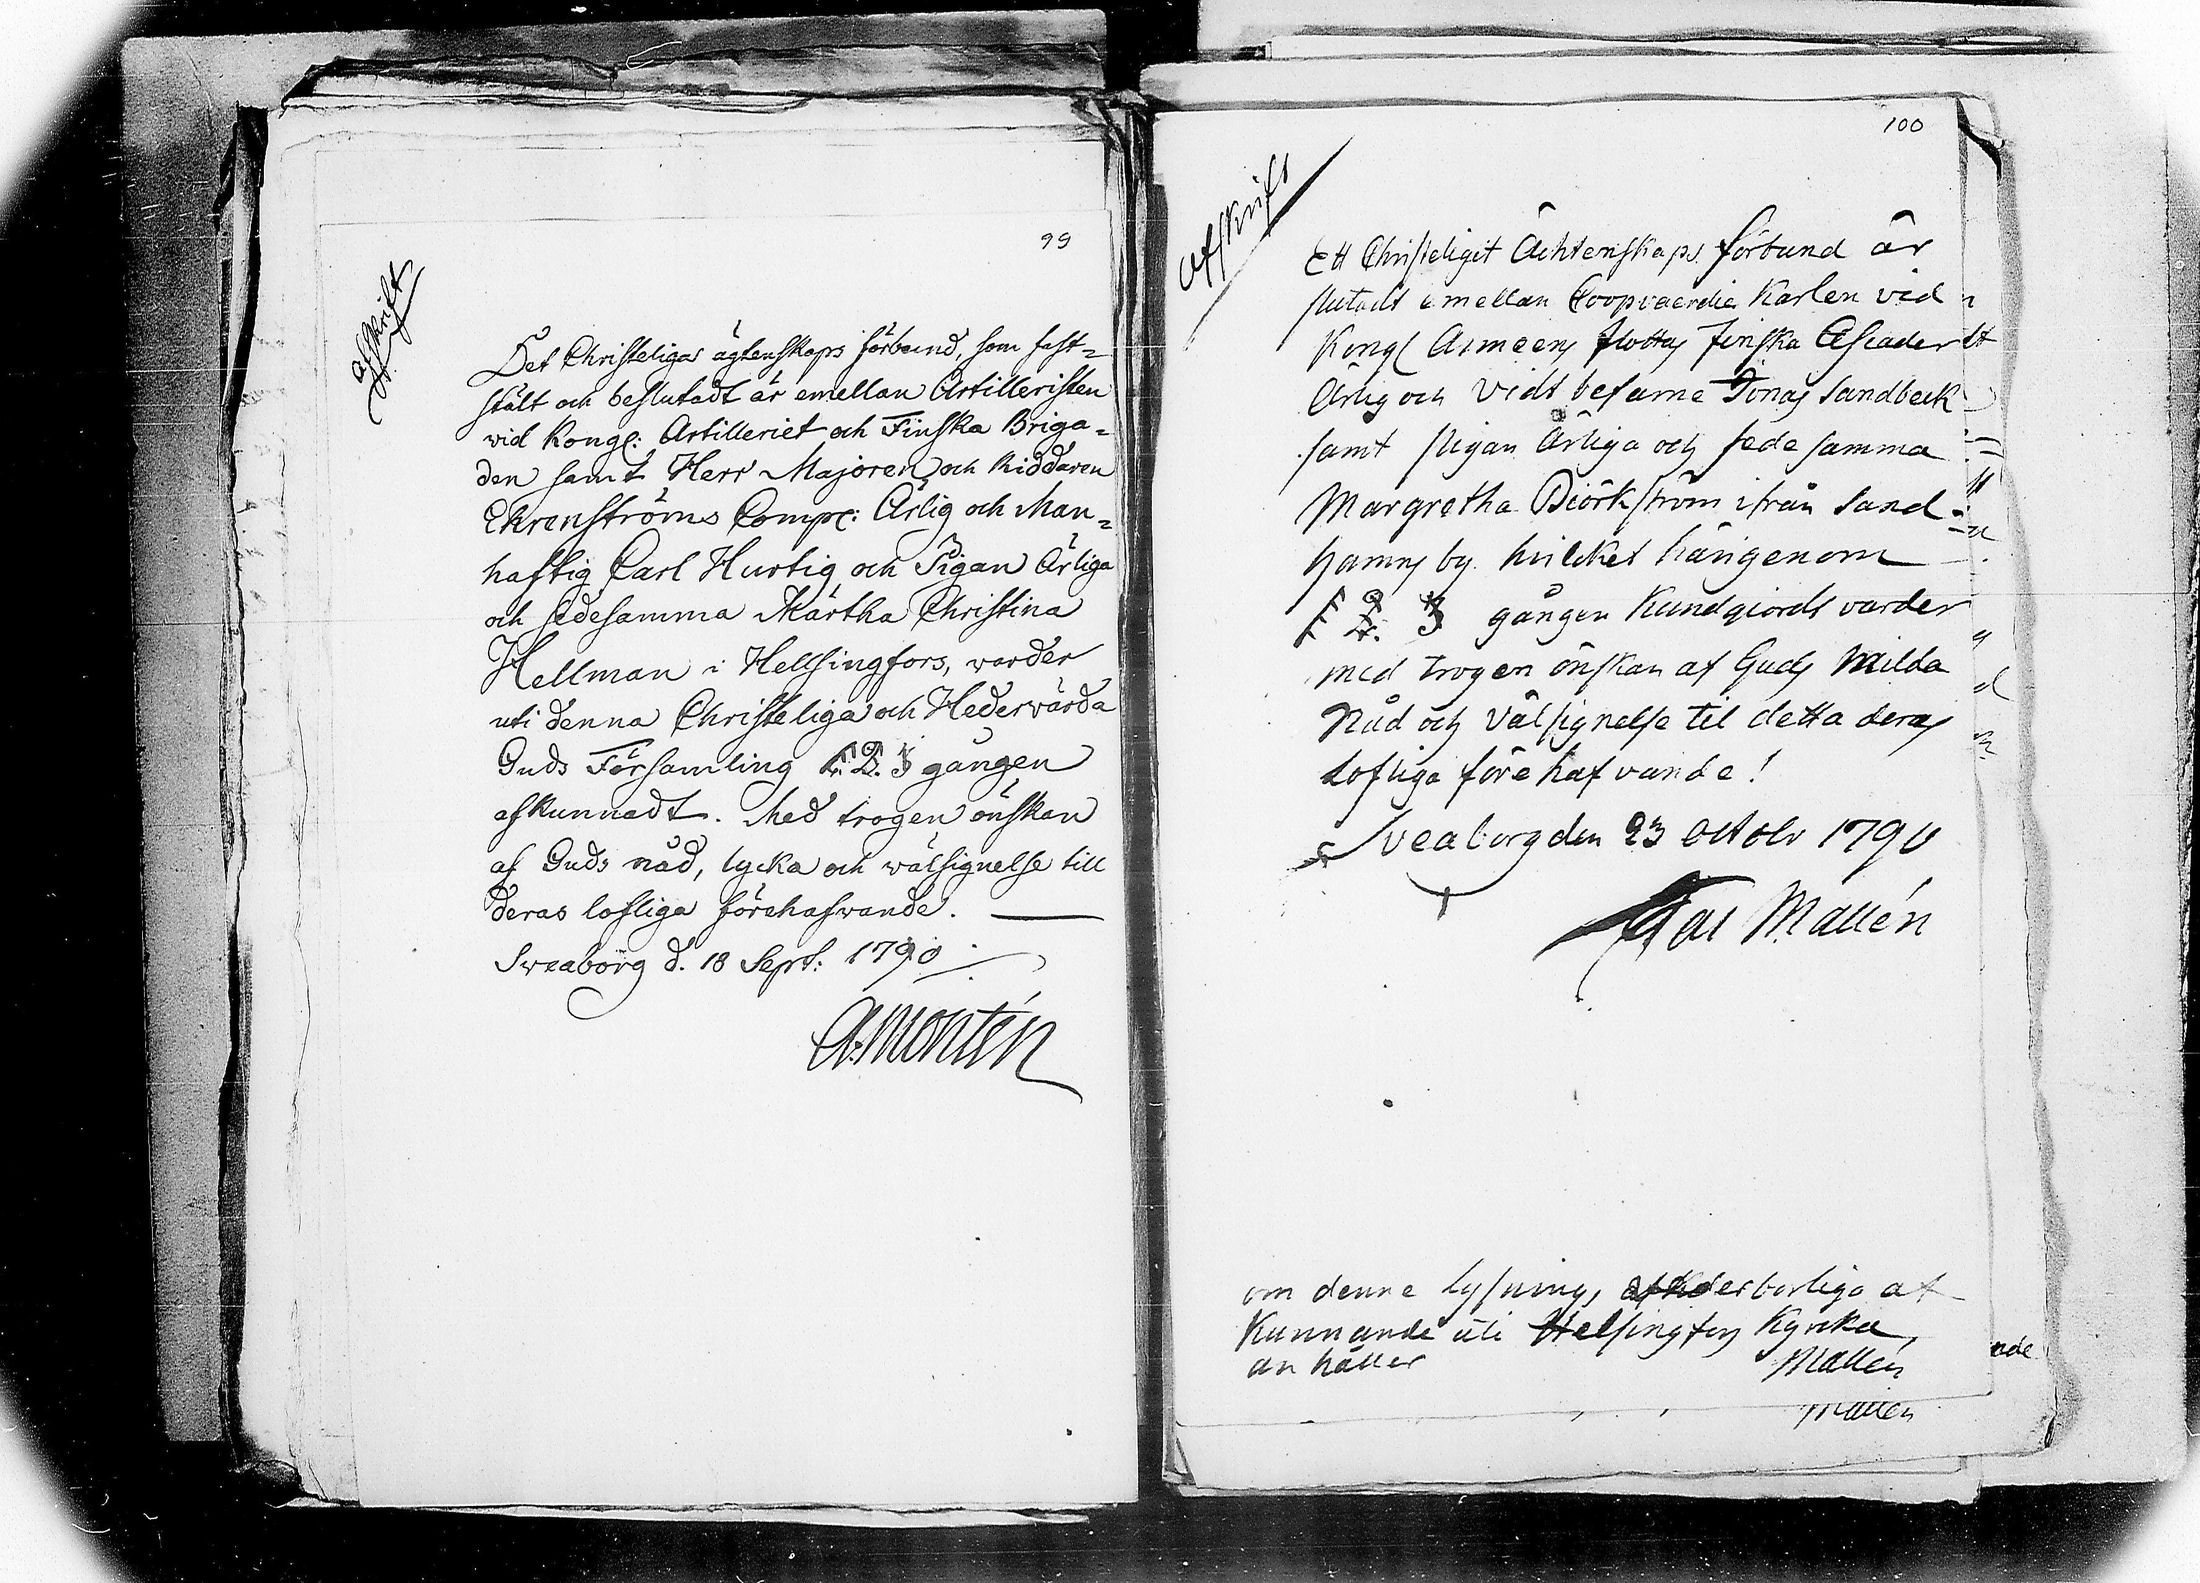 99
afskrift
Det Christeliga ägtenskaps förbund, som fast=
stält och beslutadt är emellan Artilleristen
vid Kongl: Artilleriet och Finska Briga=
den samt Herr Majoren och Riddaren
Ehrenströms Comp: Ärlig och Man=
haftig Carl Hurtig och Pigan Ärliga
och sedesamma Märtha Christina
Hellman i Hellsingfors, warder
uti denna Christeliga och Hederwärda
Guds Församling 1. 2. 3 gången
afkunnadt. Med trogen önskan
af Guds nåd, lycka och wälsignelse till
deras lofliga förehafwande.
Sweaborg d. 18 Sept: 1790
A. Montén
100
Afskrift
Ett Christeligit Ächtenskaps förbund är
slutadt emellan Coopvaerdie Karlen vid
Kongl Armeens flottas Finska Escader
Ärlig och Vidt befarne Jonas Sandbeck
samt pigan Ärliga och sedesamma
Margretha Biörkström ifrån Sand=
hamns by. hvilcket härigenom
1 2. 3 gången Kundgiordt varder
med trogen önskan af Guds Milda
Nåd och Välsignelse til detta deras
Lofliga förehafvande!
Sveaborg den 23 Octobr 1790
Mallén
om denne lysnings derborliga af
Kunnande uti Helsingfors Kyrka,
an håller Mallén
nde
Mallén